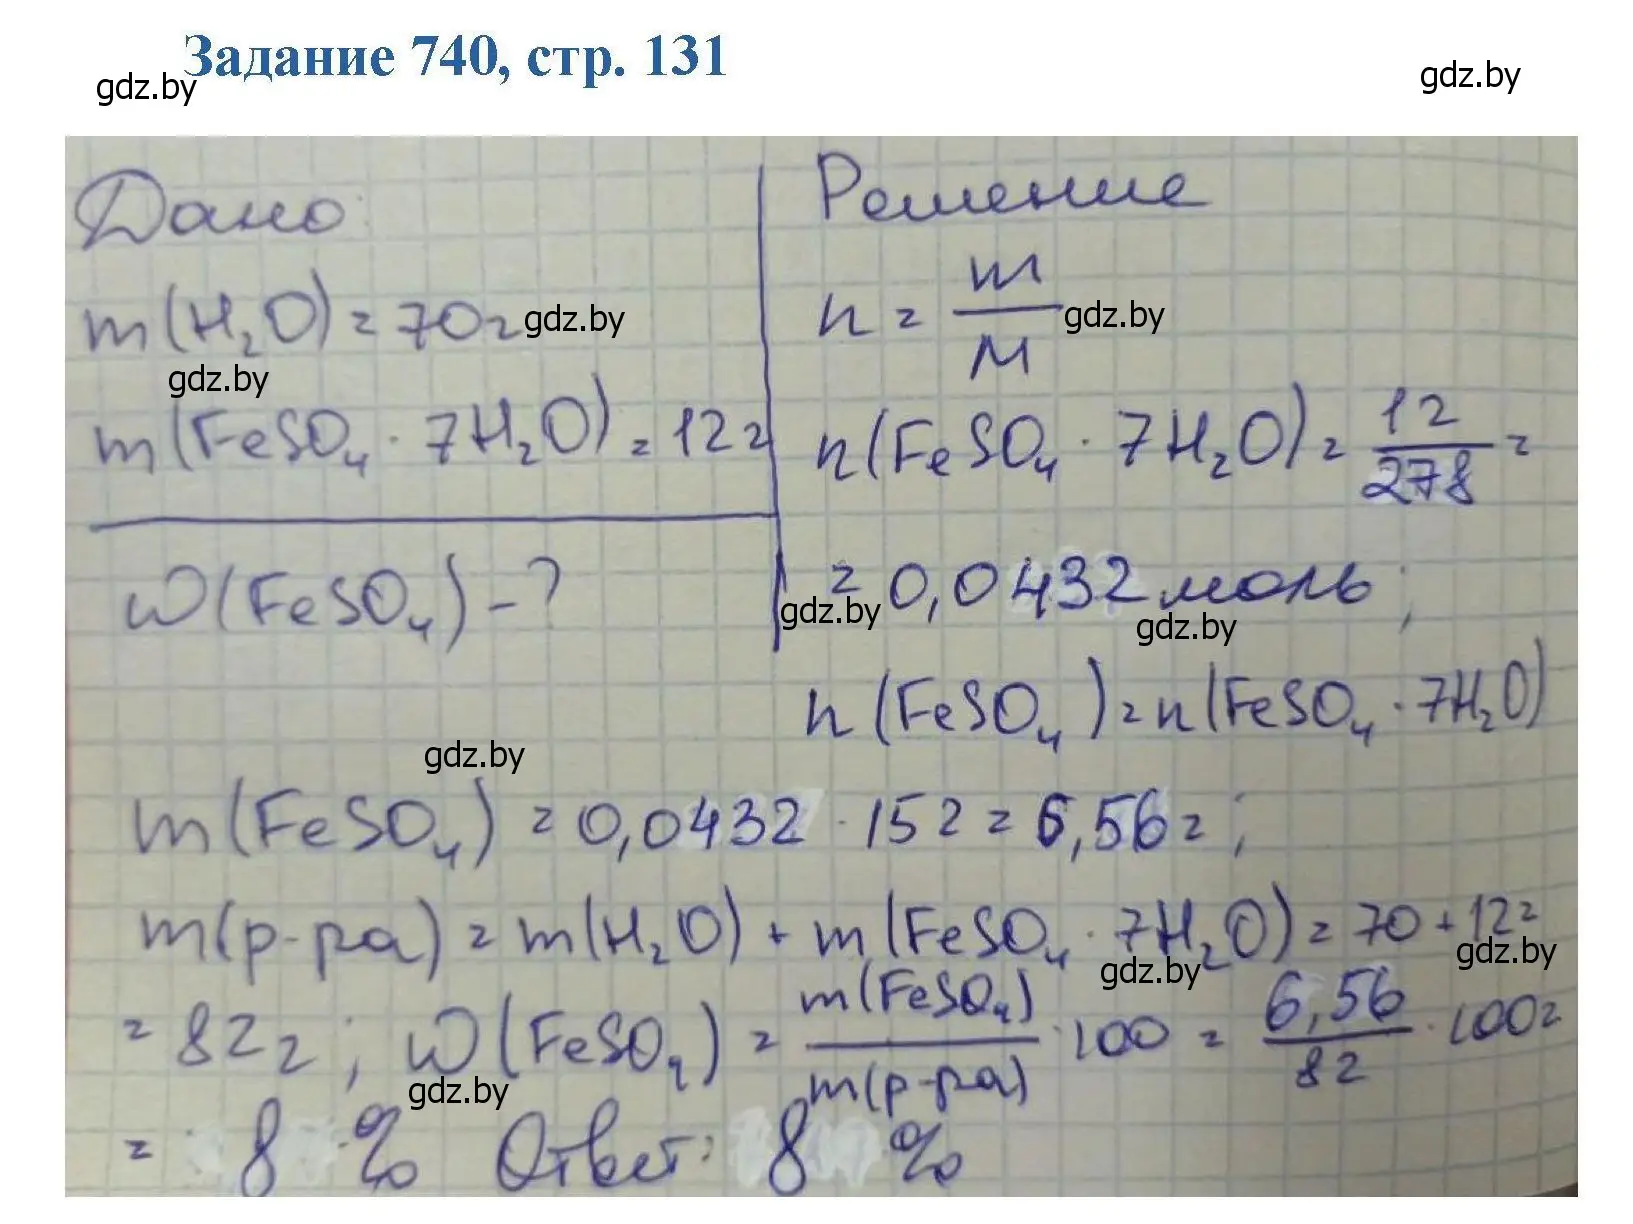 Задание 740, стр. 131
gdz.by
gdz.by
Дано:
m(H₂O) = 70г
gdz.by
gdz.by
m(FeSO₄ · 7H₂O) = 12г
W(FeSO₄) - ?
Решение
n = m/M
gdz.by
n(FeSO₄ · 7H₂O) = 12/278 =
= 0,0432 моль;
gdz.by
gdz.by
n(FeSO₄) = n(FeSO₄ · 7H₂O)
gdz.by
m(FeSO₄) = 0,0432 · 152 = 6,56г;
m(р-ра) = m(H₂O) + m(FeSO₄ · 7H₂O) = 70 + 12 =
gdz.by
gdz.by
= 82г; W(FeSO₄) = m(FeSO₄)/m(р-ра) · 100 = 6,56/82 · 100 =
gdz.by
= 8 % Ответ: 8 %